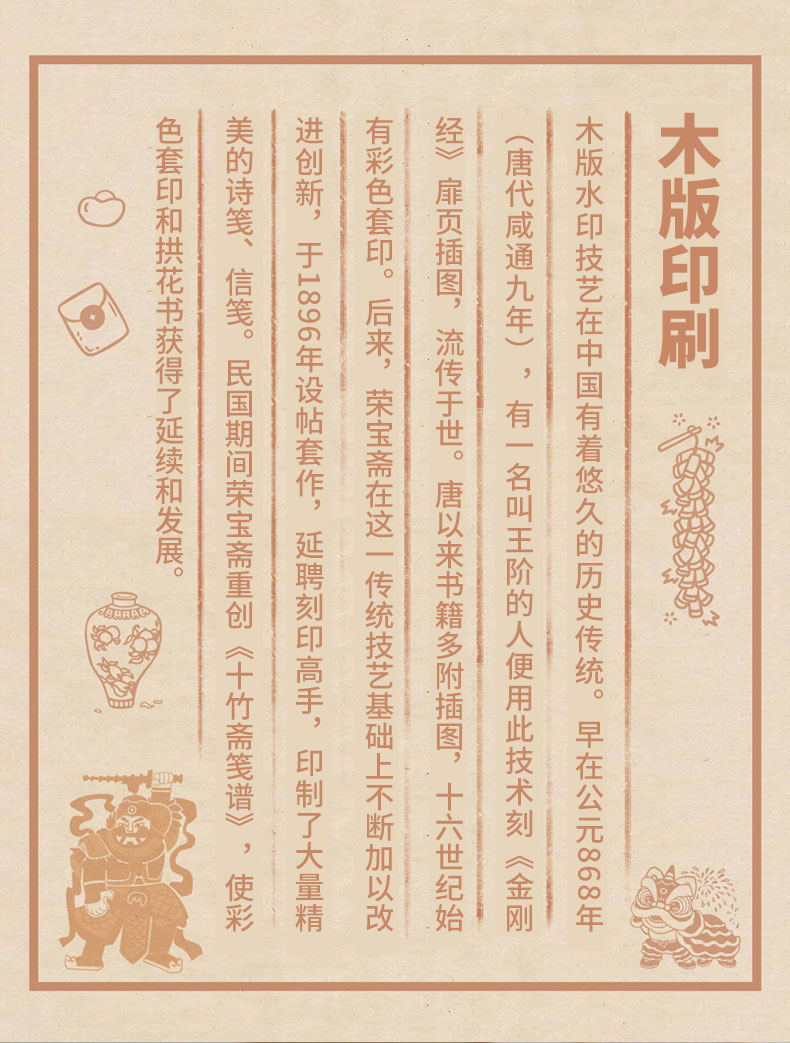 木版印刷
木版水印技艺在中国有着悠久的历史传统。早在公元868年
（唐代咸通九年），有一名叫王阶的人便用此技术刻《金刚
经》扉页插图，流传于世。唐以来书籍多附插图，十六世纪始
有彩色套印。后来，荣宝斋在这一传统技艺基础上不断加以改
进创新，于1896年设帖套作，延聘刻印高手，印制了大量精
美的诗笺、信笺。民国期间荣宝斋重创《十竹斋笺谱》，使彩
色套印和拱花书获得了延续和发展。